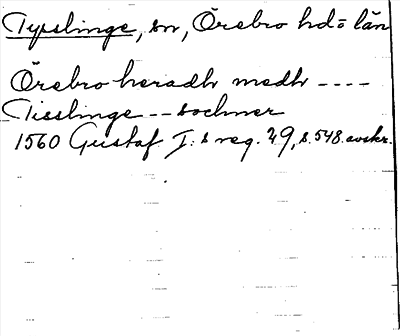 Tysslinge, sn, Örebro hd = län
Örebro heradh medh ----
Tisslinge -- sochner
1560 Gustaf I:s reg. 29, s. 548. avskr.